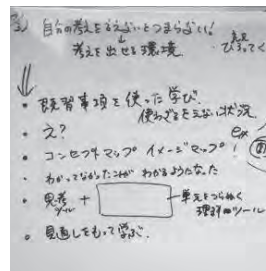 自分の考えを言えないとつまらない!
考えを出せる環境
・既習事項を使った学び
使わざるをえない状況
・え?
ex
・コンセプトマップ イメージマップ
・わかってなかったことが わかるようになった
・思考ツール + 単元をつらぬく
理解ツール
・見通しをもって学ぶ.